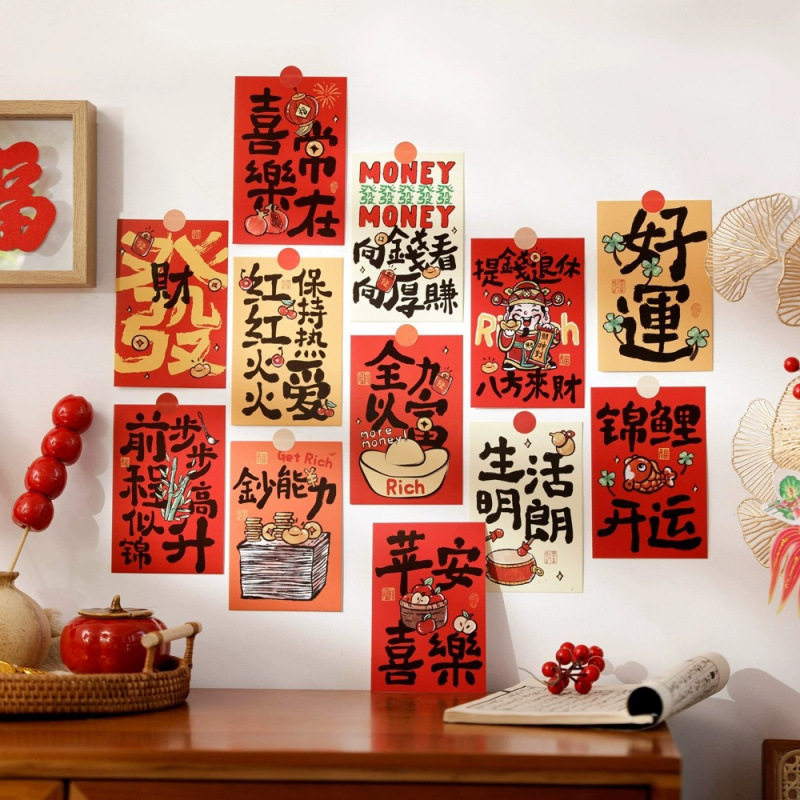 福
喜樂
常在
MONEY
發發發發發
MONEY
向錢看
向厚賺
發財
红红火火
保持热爱
提錢退休
Rich
八方來財
好運
前程似锦
步步高升
Get Rich
鈔能力
全力
以富
more
money!
Rich
生活
明朗
锦鲤
开运
苹安
喜樂